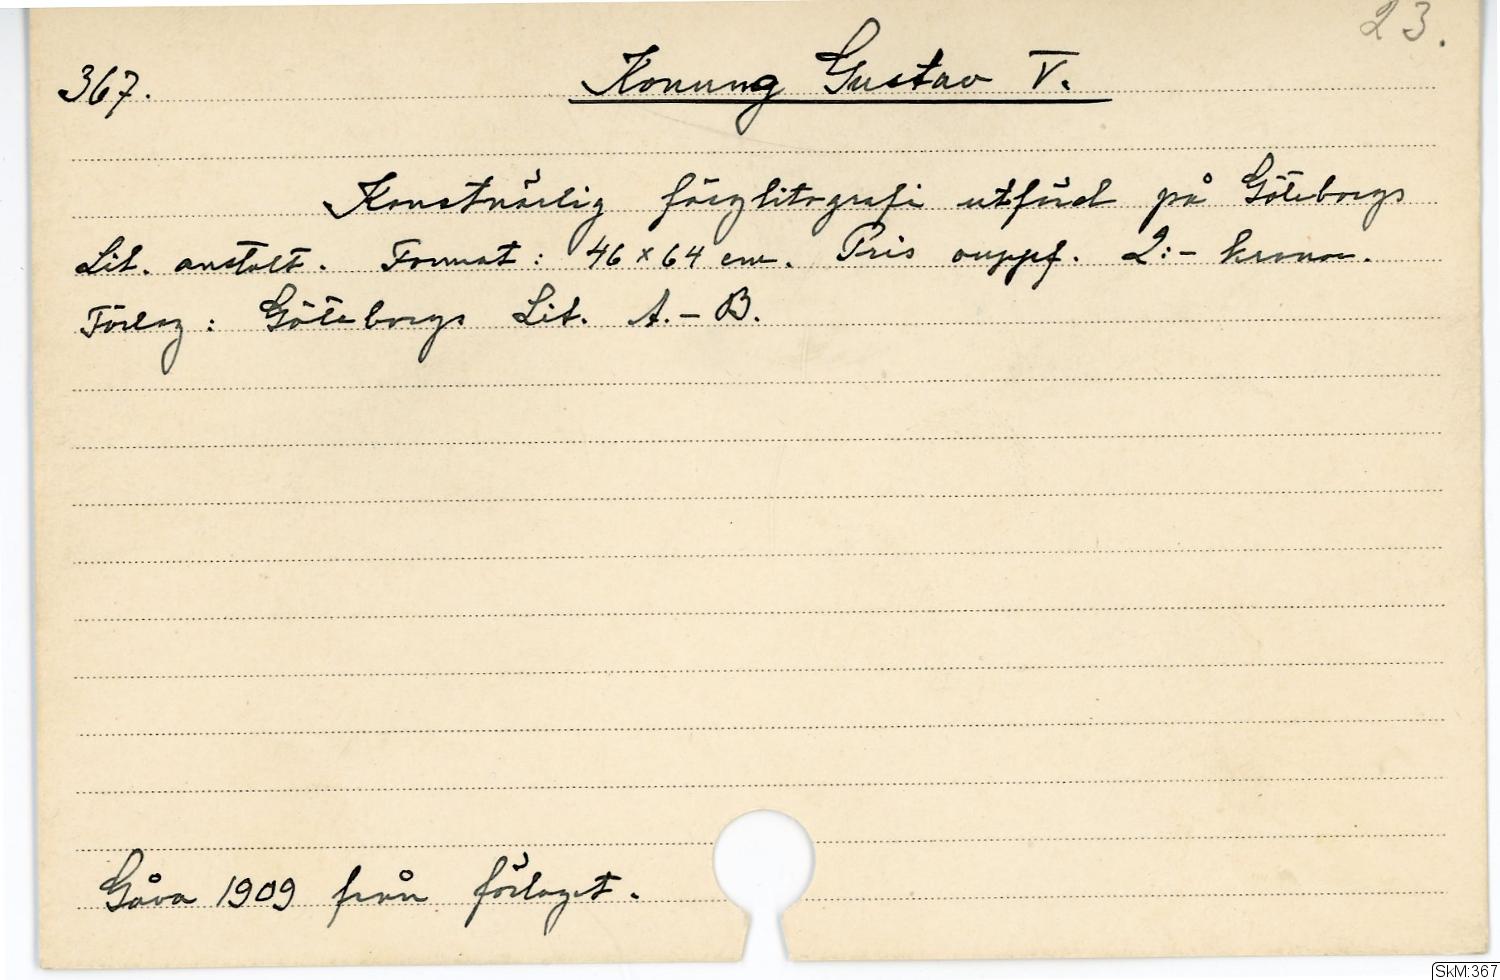 23.
367. Konung Gustav V.
Konstnärlig färglitografi utförd på Göteborgs
Lit. anstalt. Format: 46 x 64 cm. Pris ouppf. 2:- kronor.
Förlag: Göteborgs Lit. A.-B.
Gåva 1909 från förlaget.
SkM:367